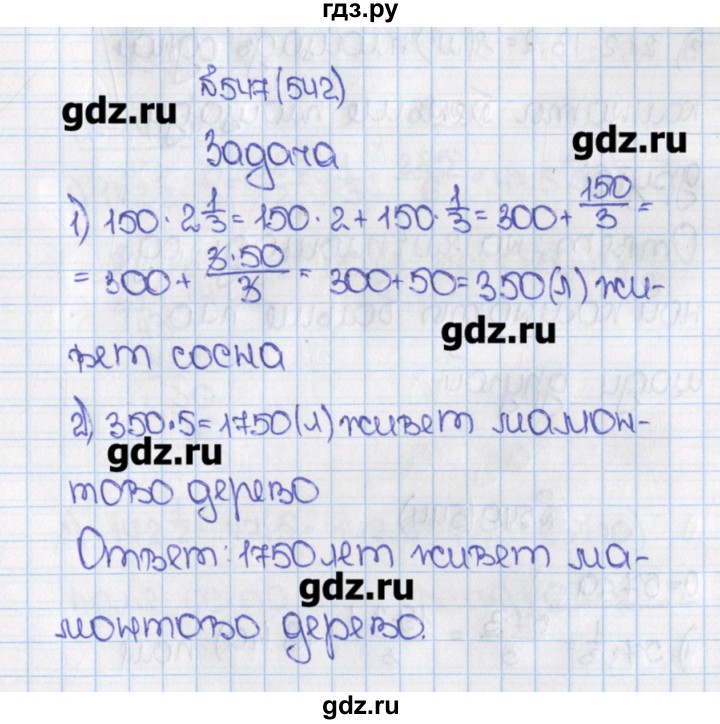 гдз.ру
№547(542)
gdz.ru
gdz.ru
Задача
1) 150·2 1/3 = 150·2 + 150·1/3 = 300 + 150/3 =
= 300 + 3·50/3 = 300+50=350(л) жи-
gdz.ru
вет сосна
2) 350·5=1750(л) живет мамон-
gdz.ru
тово дерево
Ответ: 1750 лет живет ма-
gdz.ru
монтово дерево.
gdz.ru